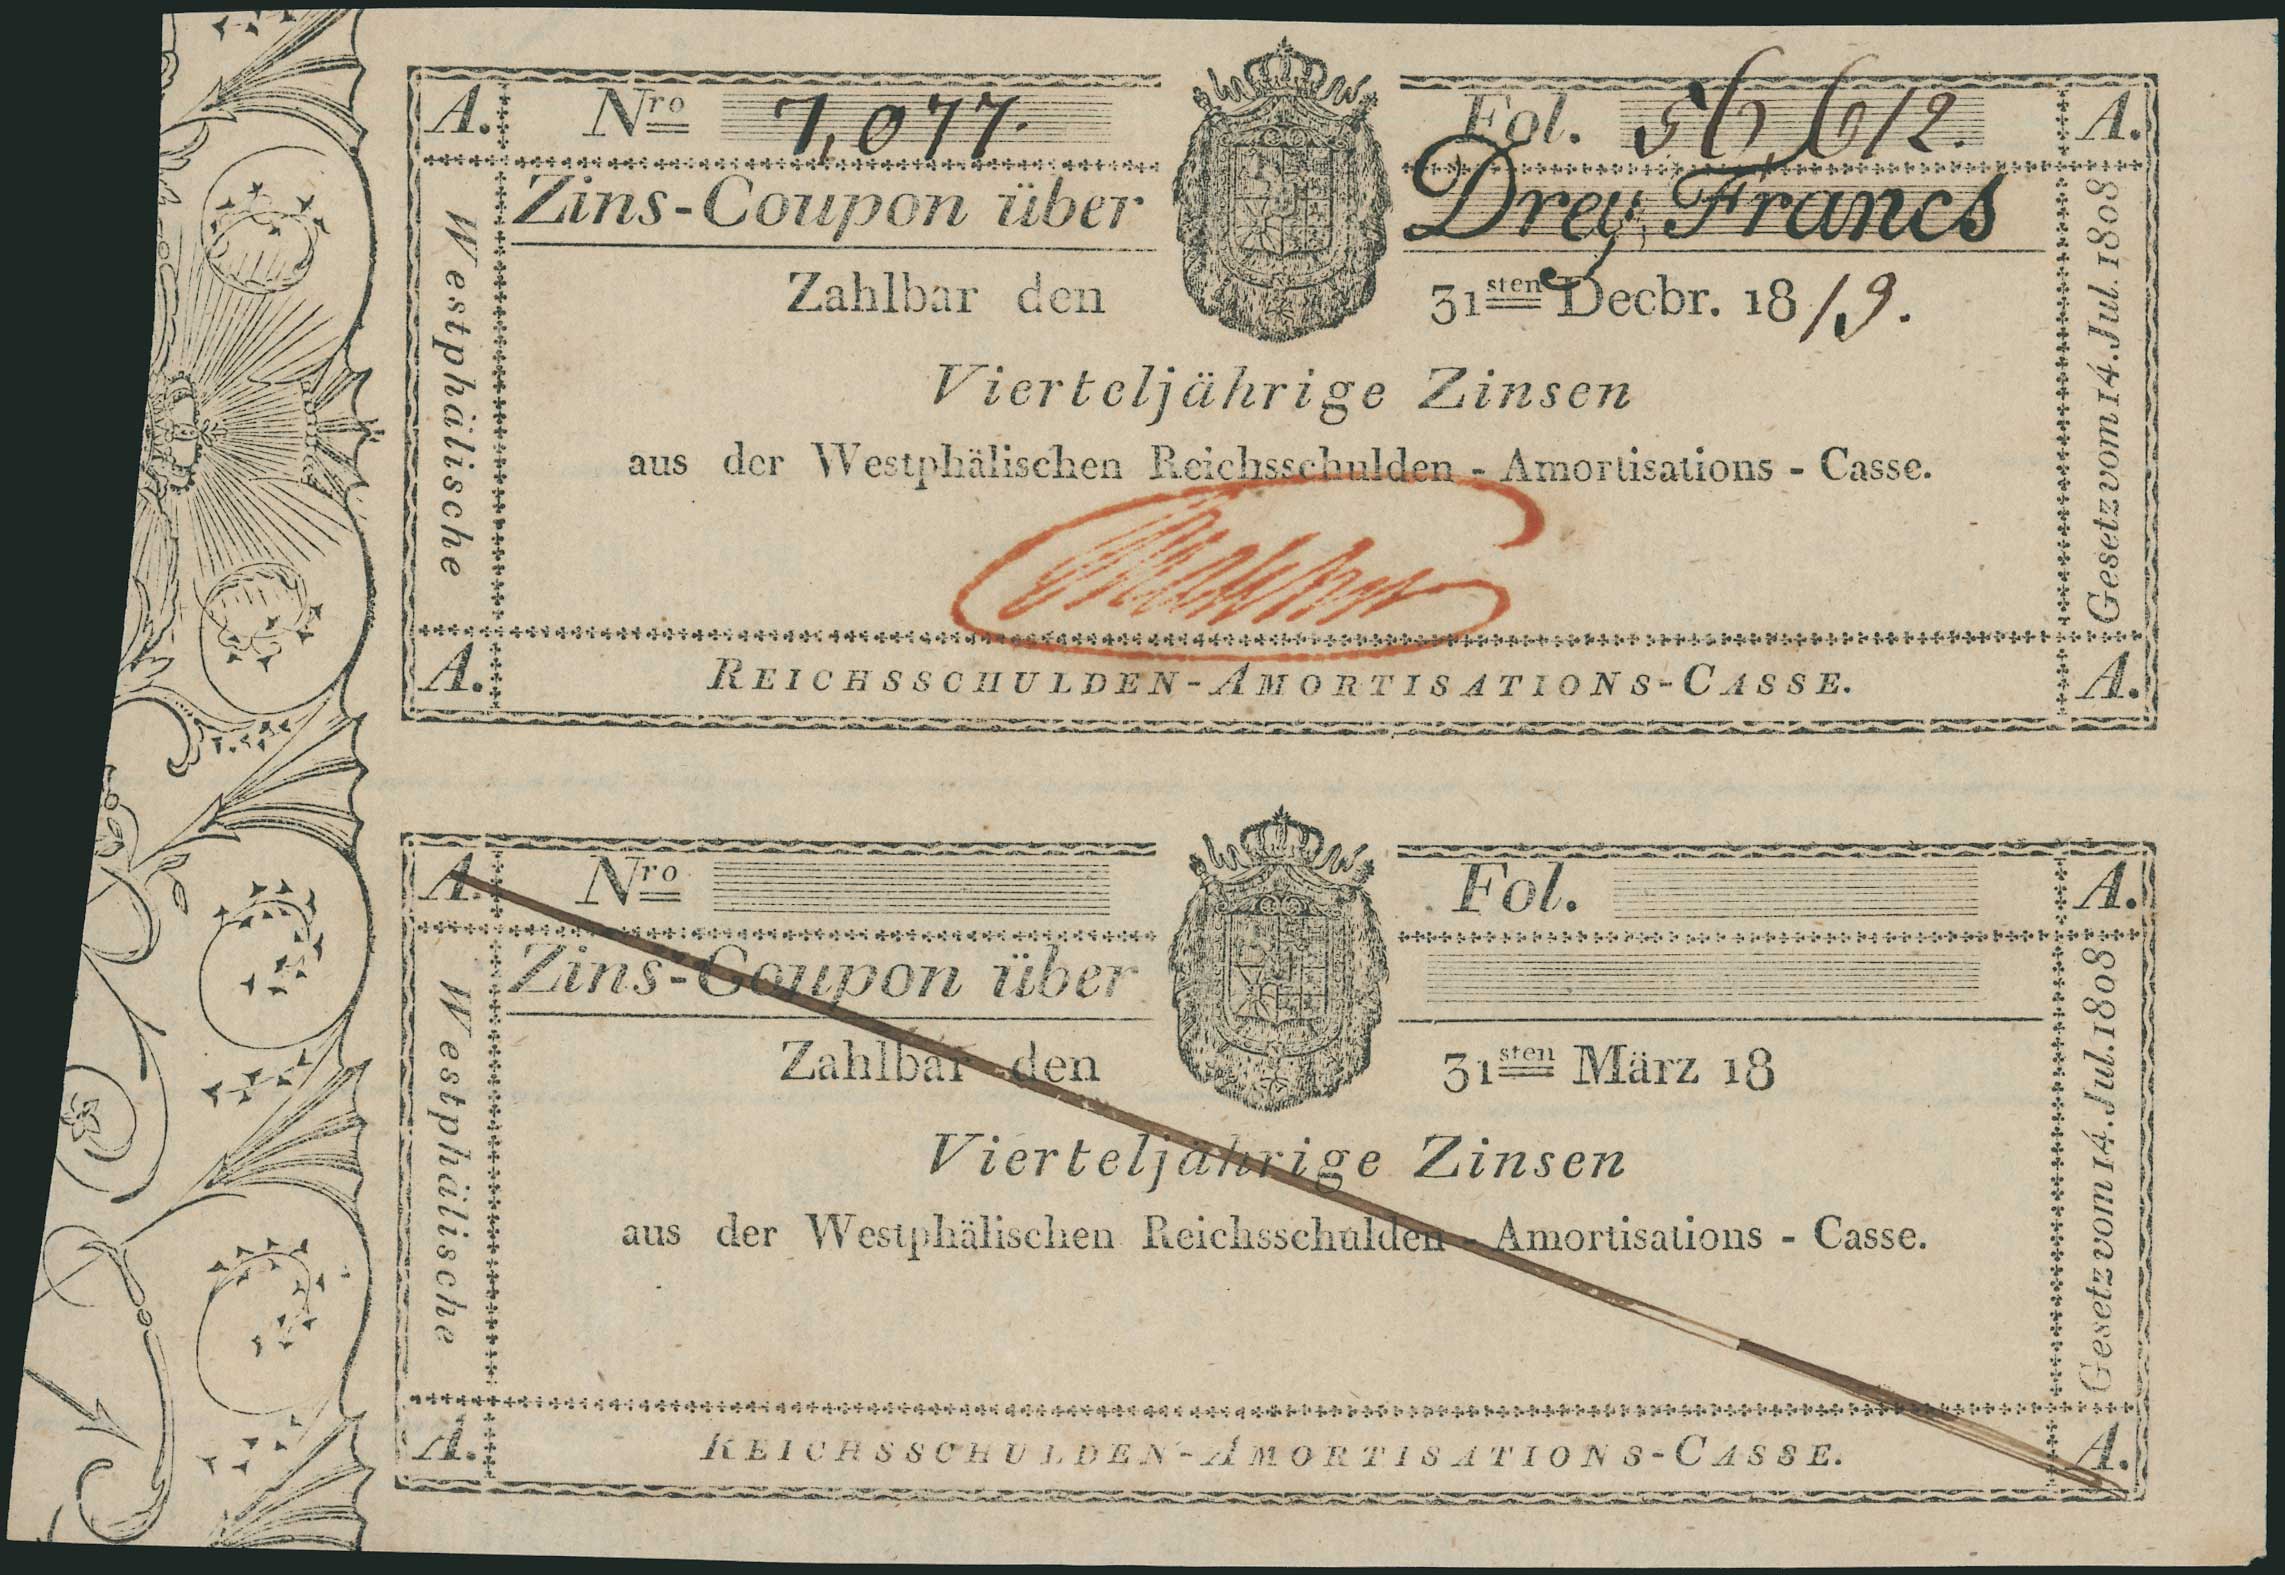 A. Nro 7,077. Fol. 56,612. A.
Zins-Coupon über Drey Francs
Zahlbar den 31sten Decbr. 1819.
Vierteljährige Zinsen
aus der Westphälischen Reichsschulden - Amortisations - Casse.
Westphälische
Gesetz vom 14. Jul. 1808
A. REICHSSCHULDEN-AMORTISATIONS-CASSE. A.
A. Nro Fol. A.
Zins-Coupon über
Zahlbar den 31sten März 18
Vierteljährige Zinsen
aus der Westphälischen Reichsschulden - Amortisations - Casse.
Westphälische
Gesetz vom 14. Jul. 1808
A. REICHSSCHULDEN-AMORTISATIONS-CASSE. A.